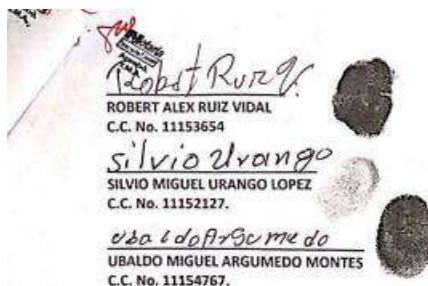 Robert Ruiz V.
ROBERT ALEX RUIZ VIDAL
C.C. No. 11153654
silvio Urango
SILVIO MIGUEL URANGO LOPEZ
C.C. No. 11152127.
ubaldo Argumedo
UBALDO MIGUEL ARGUMEDO MONTES
C.C. No. 11154767.